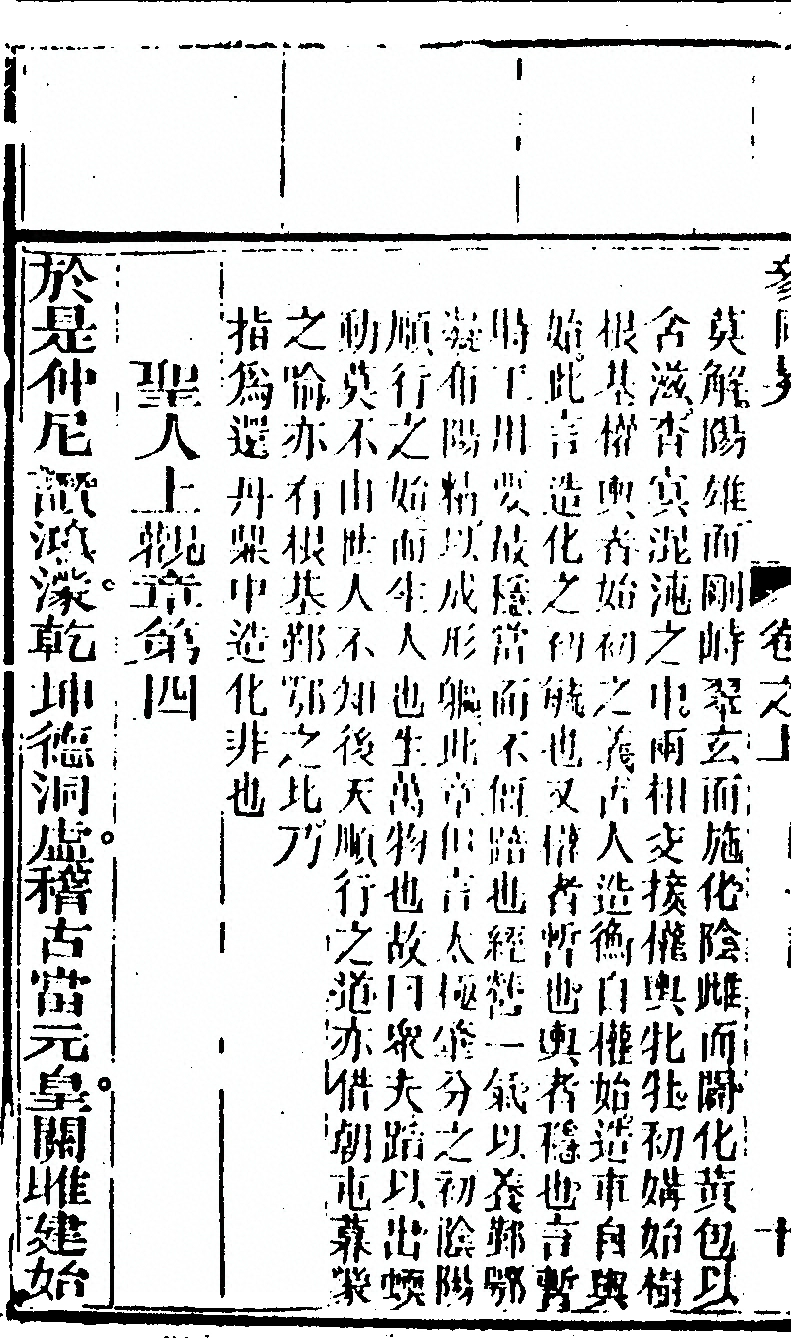 卷之上
十
莫解陽雄而剛峙翠玄而施化陰雌而闢化黃包以
含滋杳冥混沌之中兩相交接權輿牝牡初媾始樹
根基權輿者始初之義古人造衡自權始造車自輿
始此言造化之初毓也又權者暫也輿者穩也言暫
時工用要故穩當而不何踏也經營一氣以養鄞鄂
凝布陽精以成形軀此章但言太極纔分之初陰陽
順行之始而生人也生萬物也故曰衆夫蹈以出蝡
動莫不由世人不知後天順行之道亦借朝屯暮蒙
之喻亦有根基鄞鄂之比乃
指為還丹鼎中造化非也
聖人上觀章第四
於是仲尼讚鴻濛乾坤德洞虛稽古當元皇關雎建始